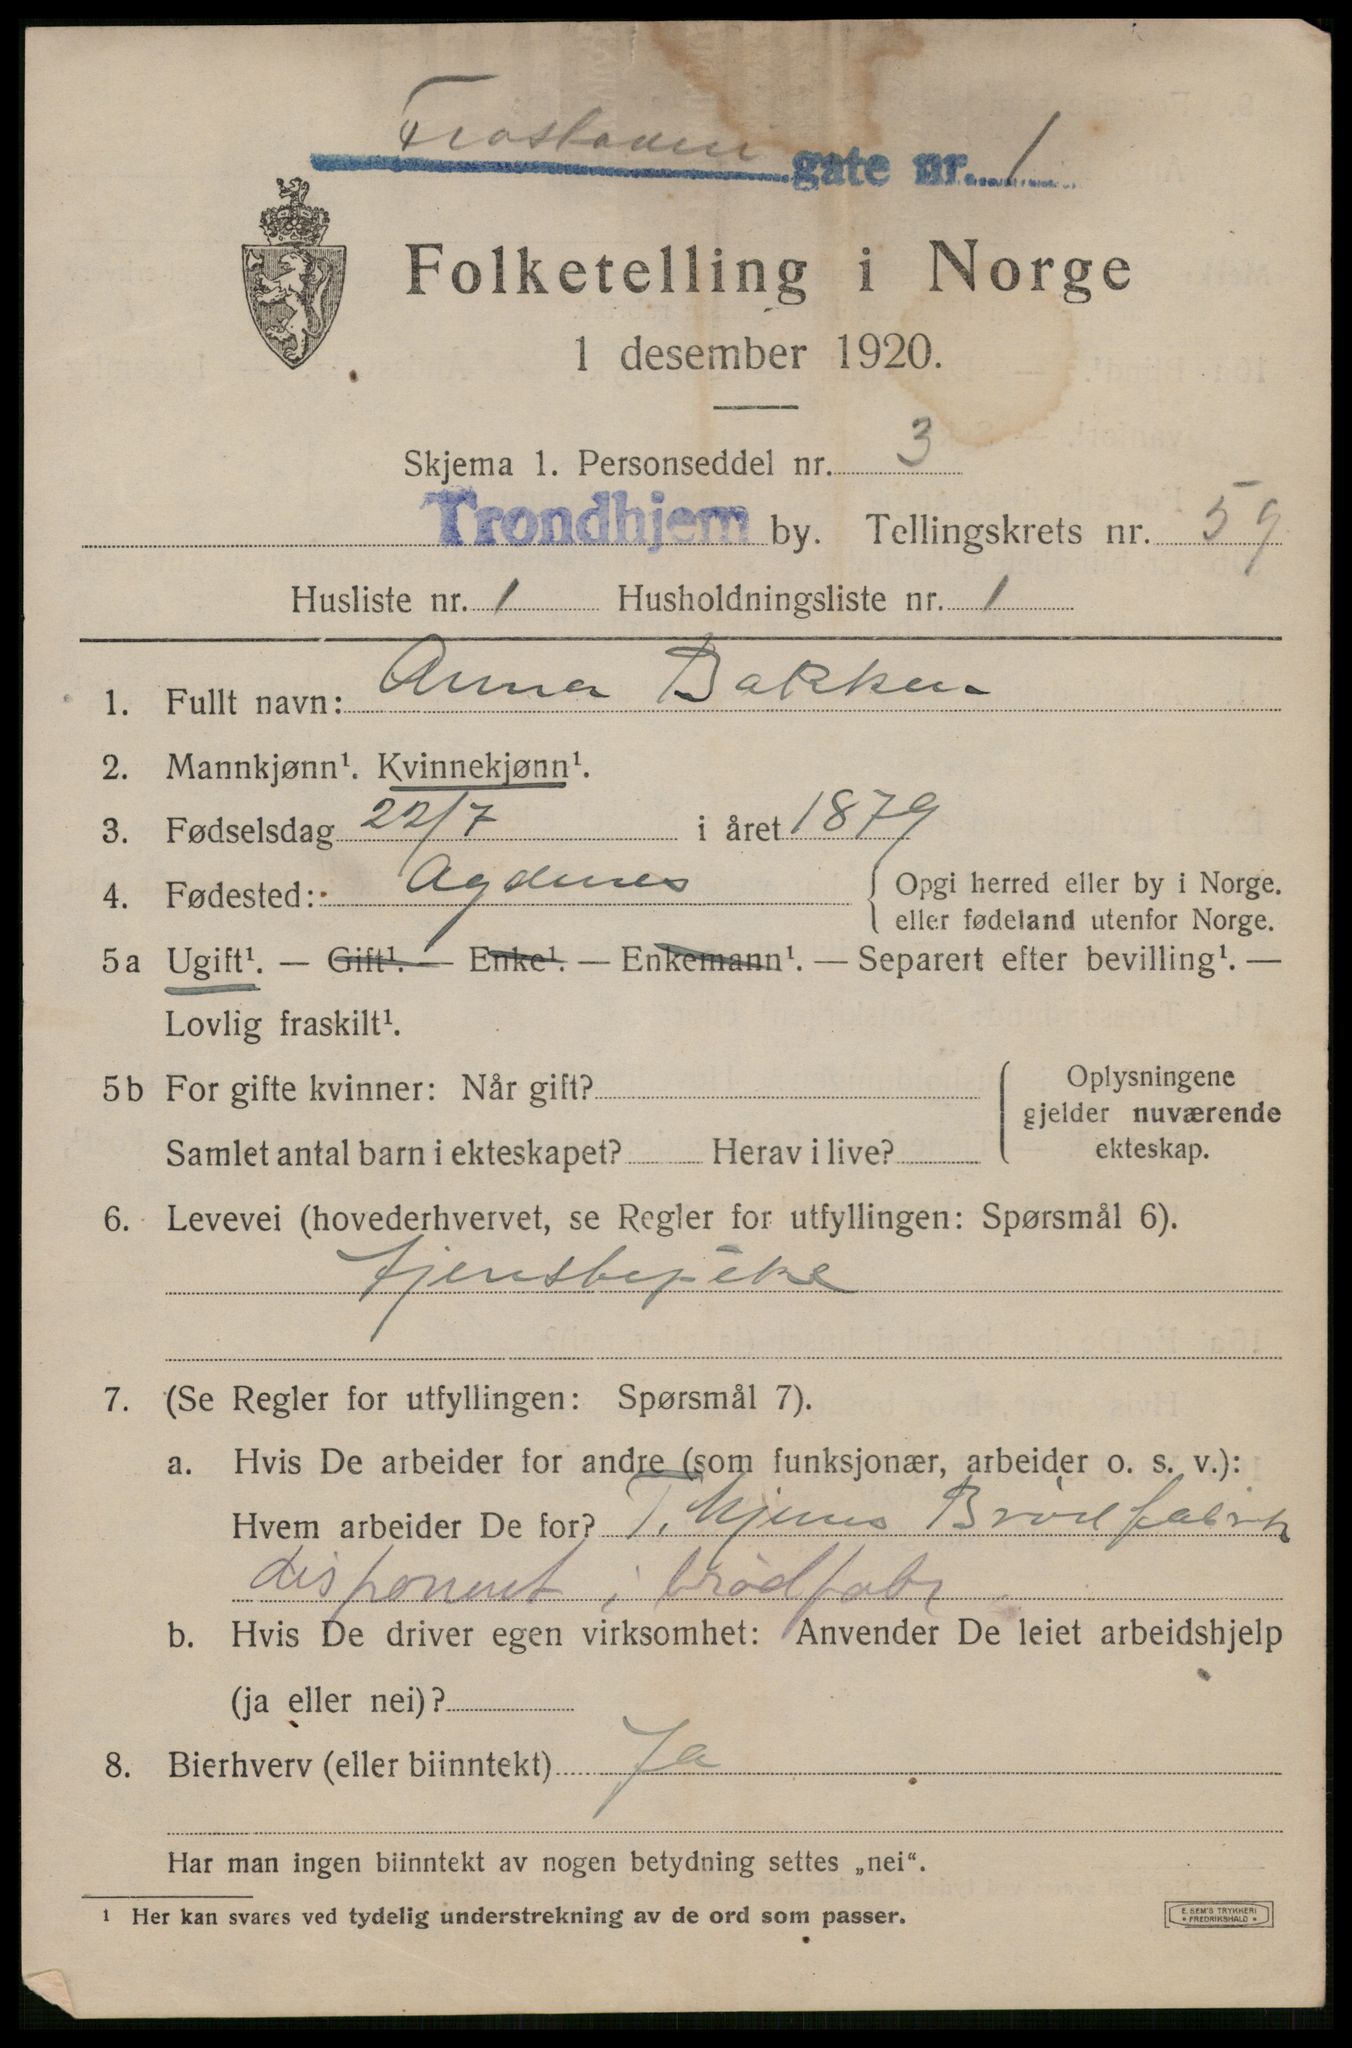 Frostaveien gate nr. 1
Folketelling i Norge
1 desember 1920.
Skjema 1. Personseddel nr. 3
Trondhjem by. Tellingskrets nr. 59
Husliste nr. 1 Husholdningsliste nr. 1
1. Fullt navn: Anna Bakken
2. Mannkjønn¹. Kvinnekjønn¹.
3. Fødselsdag 22/7 i året 1879
4. Fødested: Agdenes { Opgi herred eller by i Norge.
eller fødeland utenfor Norge.
5a Ugift¹. — Gift¹. — Enke¹. — Enkemann¹. — Separert efter bevilling¹. —
Lovlig fraskilt¹.
5b For gifte kvinner: Når gift? { Oplysningene
gjelder nuværende
Samlet antal barn i ekteskapet? Herav i live? ekteskap.
6. Levevei (hovederhvervet, se Regler for utfyllingen: Spørsmål 6).
tjenstepike
7. (Se Regler for utfyllingen: Spørsmål 7).
a. Hvis De arbeider for andre (som funksjonær, arbeider o. s. v.):
Hvem arbeider De for? T. hjems Brödfabrik
disponent i brødfabr
b. Hvis De driver egen virksomhet: Anvender De leiet arbeidshjelp
(ja eller nei)?
8. Bierhverv (eller biinntekt) Ja
Har man ingen biinntekt av nogen betydning settes „nei“.
¹ Her kan svares ved tydelig understrekning av de ord som passer.
E. SEM'S TRYKKERI
• FREDRIKSHALD •